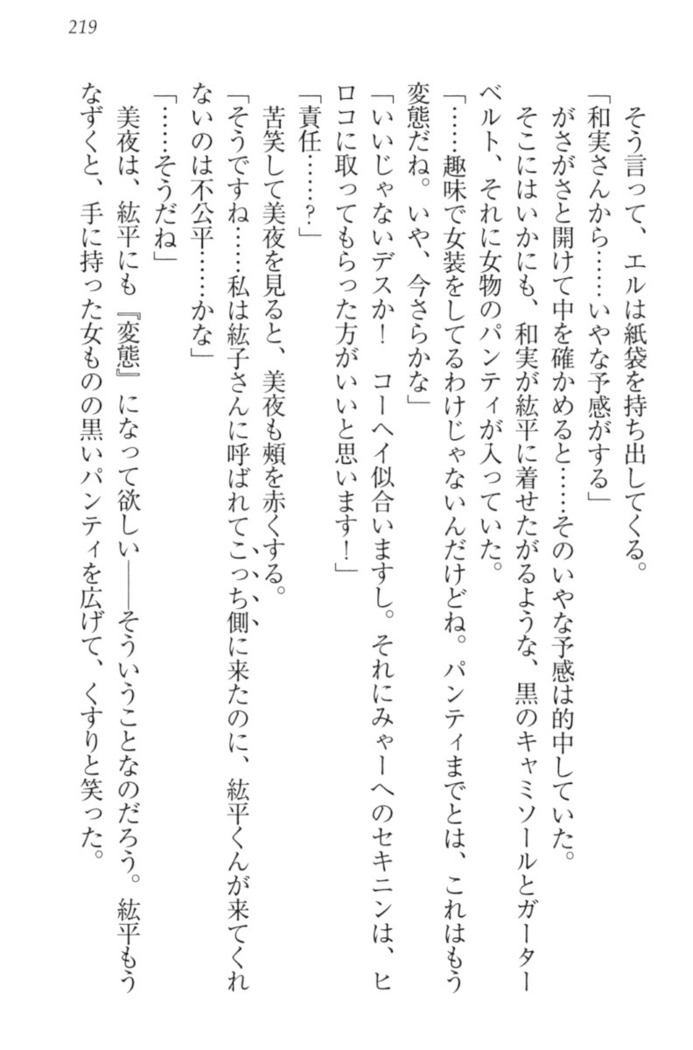 219
そう言って、エルは紙袋を持ち出してくる。
「和実さんから……いやな予感がする」
がさがさと開けて中を確かめると……そのいやな予感は的中していた。
そこにはいかにも、和実が紘平に着せたがるような、黒のキャミソールとガーター
ベルト、それに女物のパンティが入っていた。
「……趣味で女装をしてるわけじゃないんだけどね。パンティまでとは、これはもう
変態だね。いや、今さらかな」
「いいじゃないデスか！　コーヘイ似合いますし。それにみゃーへのセキニンは、ヒ
ロコに取ってもらった方がいいと思います！」
「責任……？」
苦笑して美夜を見ると、美夜も頰を赤くする。
「そうですね……私は紘子さんに呼ばれてこっち側に来たのに、紘平くんが来てくれ
ないのは不公平……かな」
「……そうだね」
美夜は、紘平にも『変態』になって欲しい――そういうことなのだろう。紘平もう
なずくと、手に持った女ものの黒いパンティを広げて、くすりと笑った。